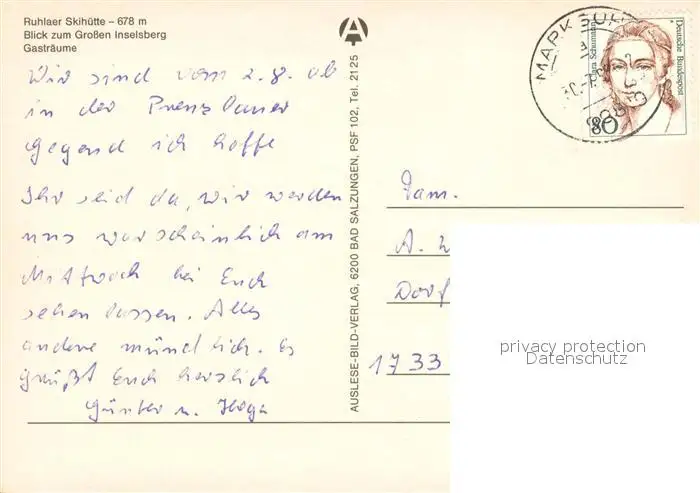 Ruhlaer Skihütte – 678 m
Blick zum Großen Inselsberg
Gasträume
Wir sind vom 2.8. ab
in der Prenzlauer
Gegend ich hoffe
Ihr seid da, wir werden
uns warscheinlich am
Mittwoch bei Euch
sehen lassen. Alles
andere mündlich. Es
grüßt Euch herzlich
Günter u. Helga
AUSLESE-BILD-VERLAG, 6200 BAD SALZUNGEN, PSF 102, Tel. 2125
A
MARKSUHL
Deutsche Bundespost
80
Fam.
A.
Dorf
1733
privacy protection
Datenschutz